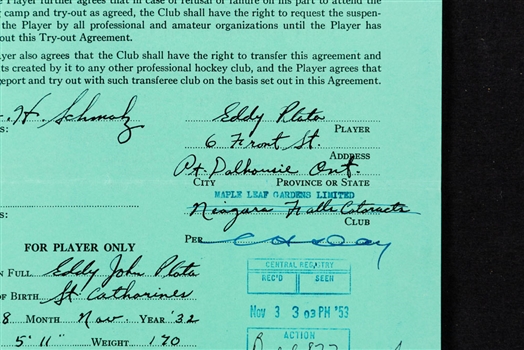 Player further agrees that in case of refusal or failure on his part to attend the
camp and try-out as agreed, the Club shall have the right to request the suspen-
the Player by all professional and amateur organizations until the Player has
out this Try-out Agreement.
yer also agrees that the Club shall have the right to transfer this agreement and
ts created by it to any other professional hockey club, and the Player agrees that
eport and try out with such transferee club on the basis set out in this Agreement.
H. Schmalz
s:
Eddy Plata
PLAYER
6 Front St.
ADDRESS
Pt. Dalhousie Ont.
CITY PROVINCE OR STATE
MAPLE LEAF GARDENS LIMITED
Niagara Falls Cataracts
CLUB
PER C H Day
FOR PLAYER ONLY
N FULL Eddy John Plata
OF BIRTH St. Catharines
8 MONTH Nov. YEAR '32
5' 11" WEIGHT 170
CENTRAL REGISTRY
REC'D SEEN
Nov 3 3 03 PM '53
ACTION